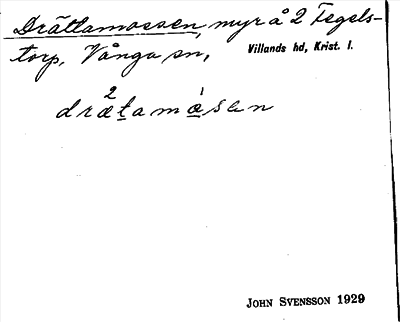 Drättamossen, myr å 2 Tegels-
torp, Vånga sn, Villands hd, Krist. l.
drætamåsen
JOHN SVENSSON 1929